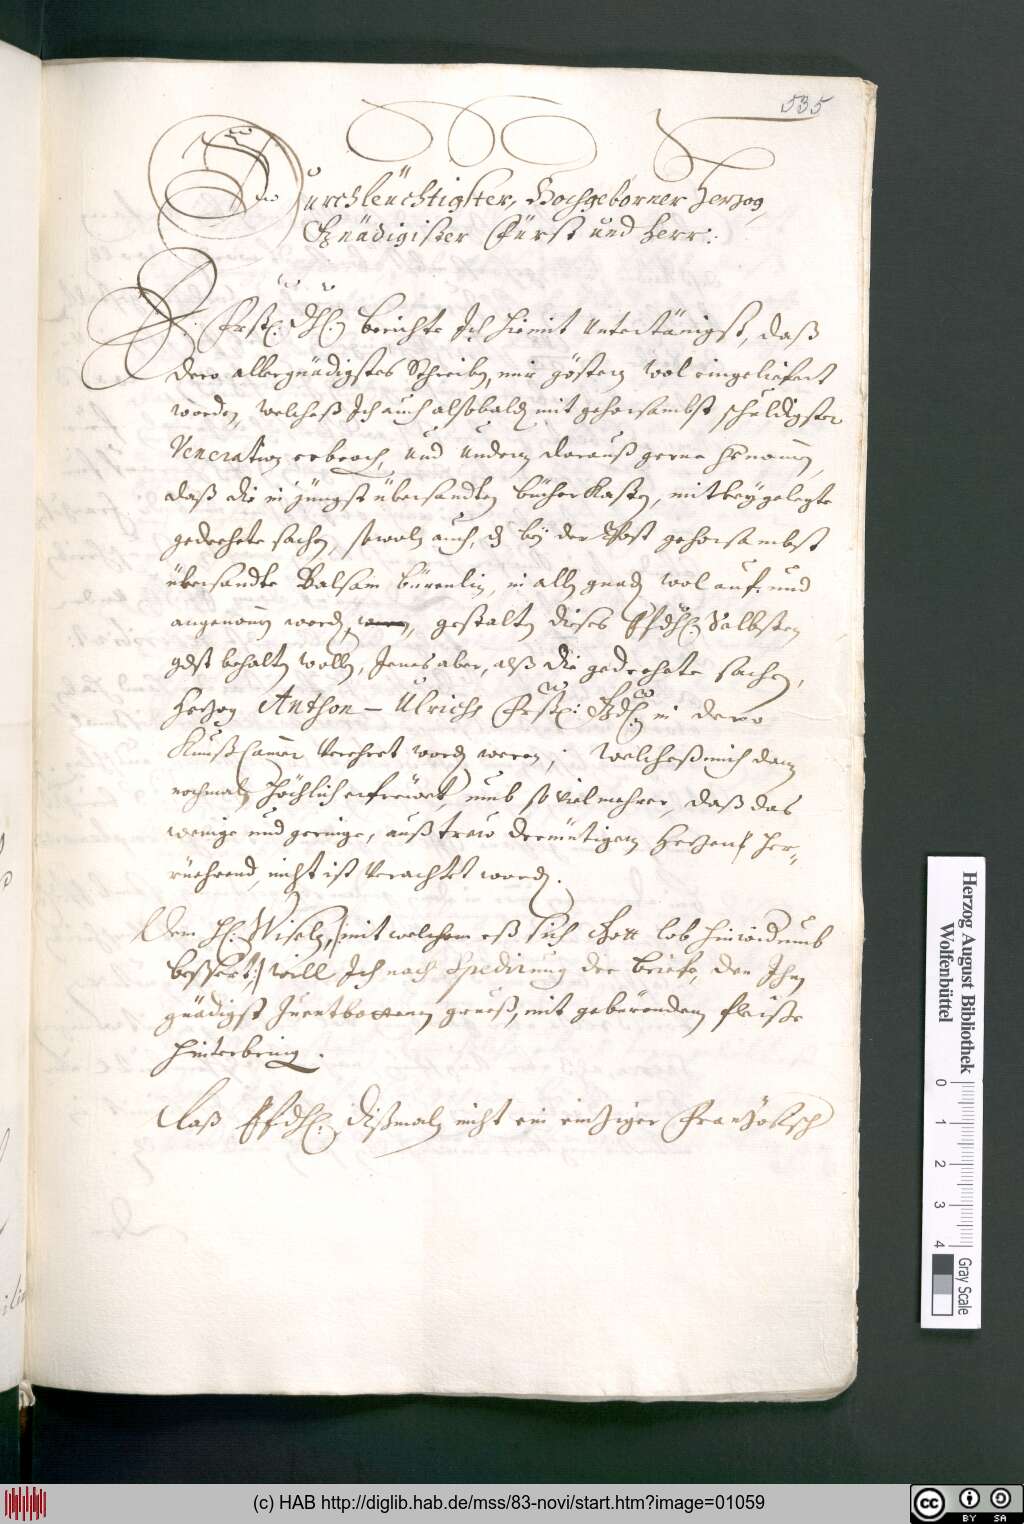 535
Durchleüchtigster, Hochgeborner Herzog,
Gnädigister Fürst und Herr:
Frstl: Dhl: berichte Ich hiemit untertänigst, daß
dero allergnädigstes Schreiben, mir göstern wol eingeliefert
worden, welcheß Ich auch alsobalden mit gehorsambst schuldigster
Veneration erbroch, und undern darauß gerne
daß die in jüngst übersandten bücher Kasten, mit beygelegte
gedrehete sachen, sowoln auch, dz bey der Post gehorsambst
übersandte Balsam in alln gnaden wol auf: und
angenomen worden, gestalten dieses Selbsten
behalten wollen, Jenes aber, alß die gedrehete sachen,
Herzog Anthon - Ulrichs Frstl: in dero
Kunst Camer verehret worden weren; welcheß mich dann
nochmaln höchlich erfrewet, umb so viel mehrer, daß das
wenige und geringe, auß trew demütigem Herzen her-
rüehrend, nicht ist verachtet worden.
Dem H: Wiseln, /:mit welchem eß sich Gott lob hinwiderumb
bessert:/ will Ich nach Spedirung der briefe, den Ihm
gnädigst Zuentbottenen grueß, mit gebürendem fleisse
hinterbringen.
Daß dißmaln nicht ein einziger Französisch
Herzog August Bibliothek
Wolfenbüttel
0 1 2 3 4
Gray Scale
(c) HAB http://diglib.hab.de/mss/83-novi/start.htm?image=01059
cc BY SA